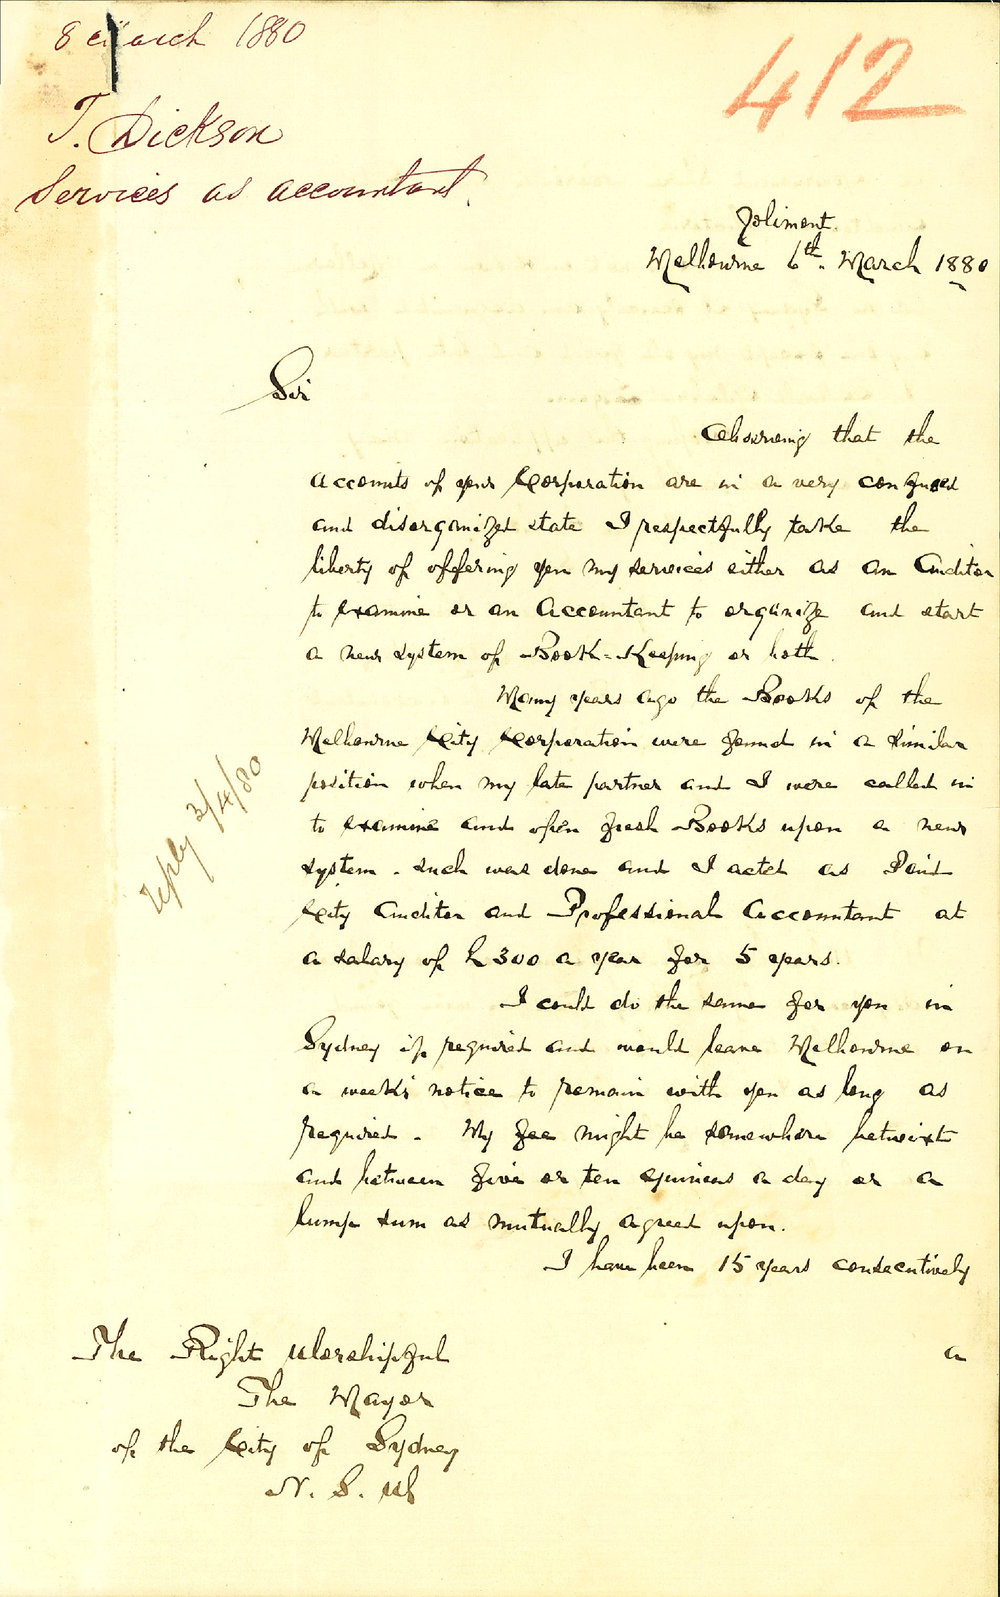 8 March 1880
412
T. Dickson
Services as accountant.
Jolimont.
Melbourne 6th. March 1880
Sir
Observing that the
accounts of your Corporation are in a very confused
and disorganized state I respectfully take the
liberty of offering you my services either as an Auditor
to examine or an Accountant to organize and start
a new system of Book-Keeping or both.
Many years ago the Books of the
Melbourne City Corporation were found in a similar
position when my late partner and I were called in
to examine and open fresh Books upon a new
system. Such was done and I acted as Paid
City Auditor and Professional Accountant at
a salary of £300 a year for 5 years.
I could do the same for you in
Sydney if required and would leave Melbourne on
a week's notice to remain with you as long as
required. My fee might be somewhere betwixt
and between five or ten guineas a day or a
lump sum as mutually agreed upon.
I have been 15 years consecutively
a
The Right Worshipful
The Mayor
of the City of Sydney
N. S. W
reply 3/4/80